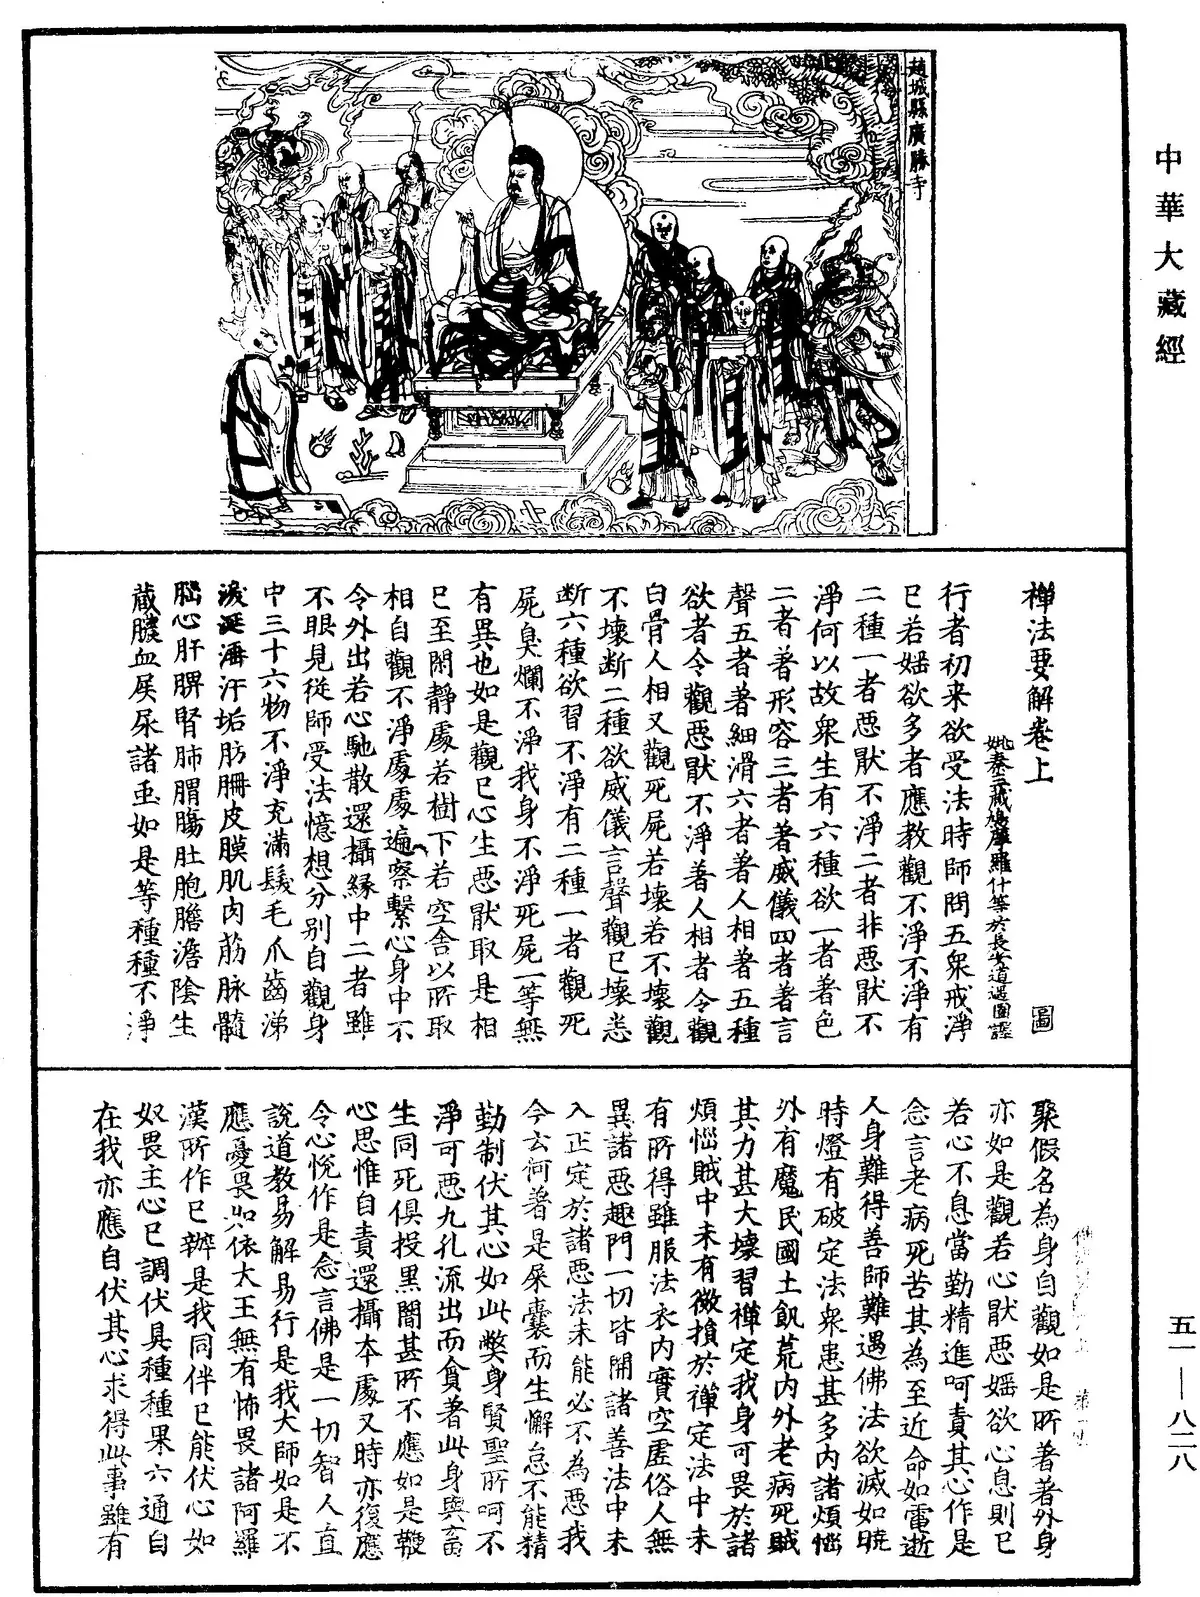 中華大藏經
趙城縣廣勝寺
禪法要解卷上　圖
姚秦三藏鳩摩羅什等於長安道逍園譯
行者初来欲受法時師問五衆戒淨
巳若婬欲多者應教觀不淨不淨有
二種一者惡猒不淨二者非惡猒不
淨何以故衆生有六種欲一者著色
二者著形容三者著威儀四者著言
聲五者著細滑六者著人相著五種
欲者令觀惡猒不淨著人相者令觀
白骨人相又觀死屍若壞若不壞觀
不壞断二種欲威儀言聲觀巳壞悉
断六種欲習不淨有二種一者觀死
屍臭爛不淨我身不淨死屍一等無
有異也如是觀巳心生惡猒取是相
巳至閑靜處若樹下若空舎以所取
相自觀不淨處處遍察繫心身中不
令外出若心馳散還攝緣中二者雖
不眼見從師受法憶想分别自觀身
中三十六物不淨充滿髮毛爪齒涕
淚涎洟汗垢肪𦙽皮膜肌肉筋脉髓
腦心肝脾腎肺胃腸肚胞膽澹陰生
蔵膿血屎尿諸䖝如是等種種不淨
聚假名為身自觀如是所著著外身
亦如是觀若心猒惡婬欲心息則巳
若心不息當勤精進呵責其心作是
念言老病死苦其為至近命如電逝
人身難得善師難遇佛法欲滅如暁
時燈有破定法衆患甚多内諸煩惱
外有魔民國土飢荒内外老病死賊
其力甚大壞習禪定我身可畏於諸
煩惱賊中未有微損於禪定法中未
有所得雖服法衣内實空虛俗人無
異諸惡趣門一切皆開諸善法中未
入正定於諸惡法未能必不為惡我
今云何著是屎囊而生懈怠不能精
勤制伏其心如此弊身賢聖所呵不
淨可惡九孔流出而貪著此身與畜
生同死俱投黒闇甚所不應如是鞭
心思惟自責還攝本處又時亦復應
令心悅作是念言佛是一切智人直
說道教易解易行是我大師如是不
應憂畏如依大王無有怖畏諸阿羅
漢所作巳辦是我同伴巳能伏心如
奴畏主心巳調伏具種種果六通自
在我亦應自伏其心求得此事雖有
五一—八二八